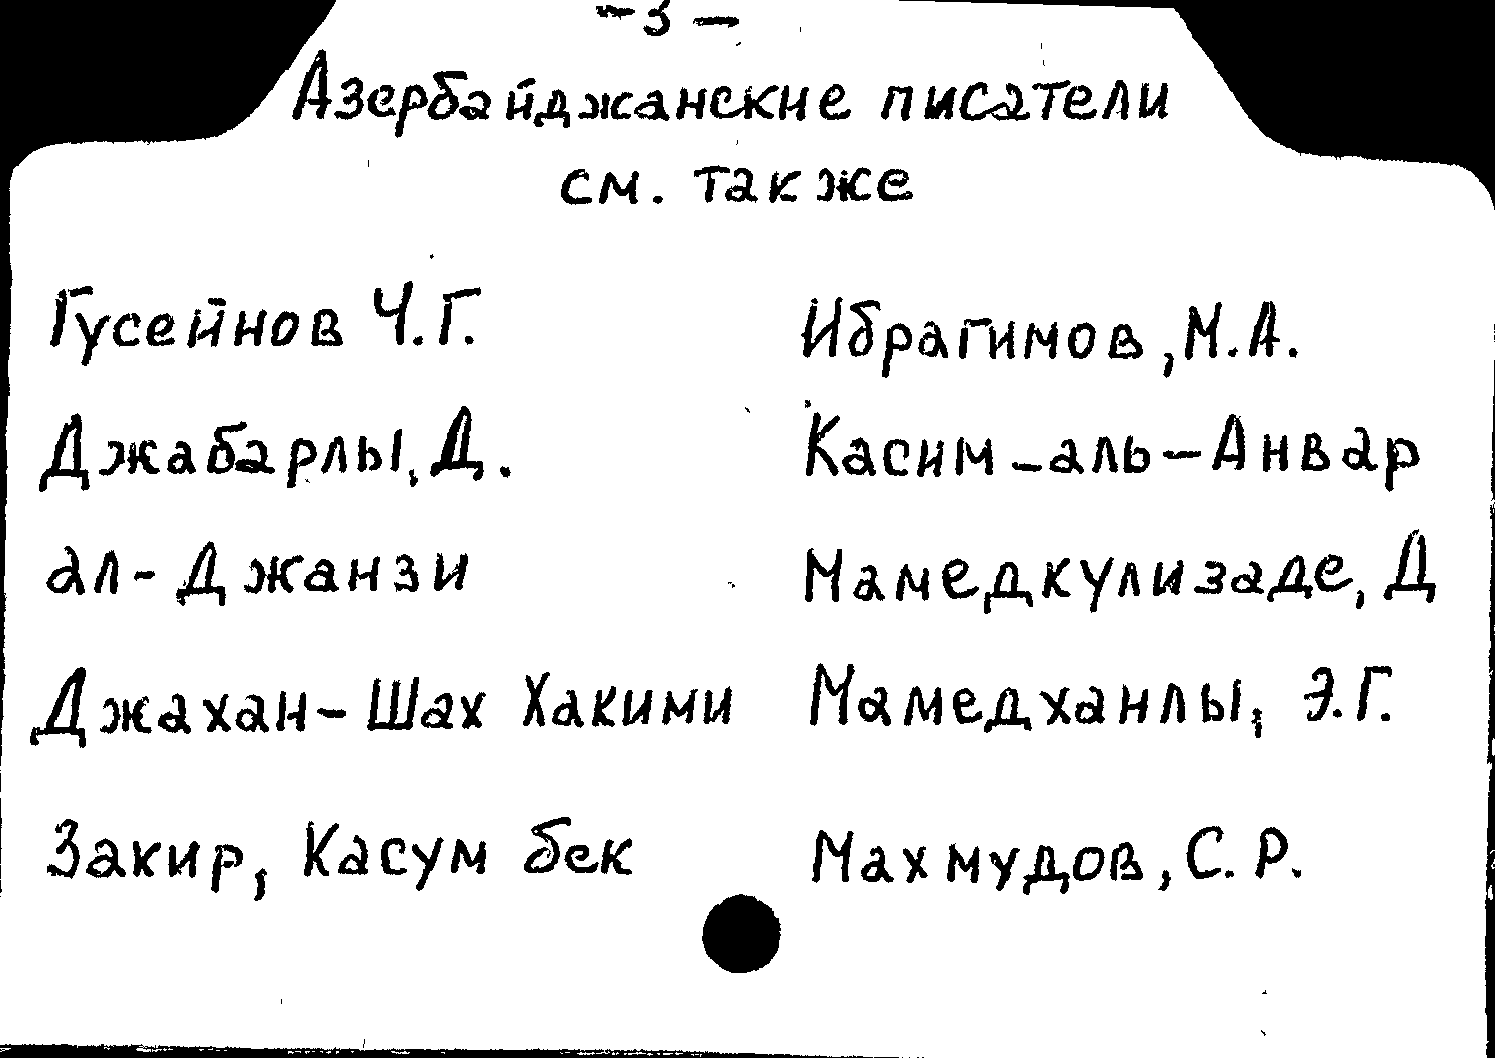 – 3 –
Азербайджанские писатели
см. также
Гусейнов Ч.Г.
Джабарлы, Д.
ал-Джанзи
Джахан-Шах Хакими
Закир, Касум бек
Ибрагимов, М.А.
Касим-аль-Анвар
Мамедкулизаде, Д
Мамедханлы, Э.Г.
Махмудов, С.Р.